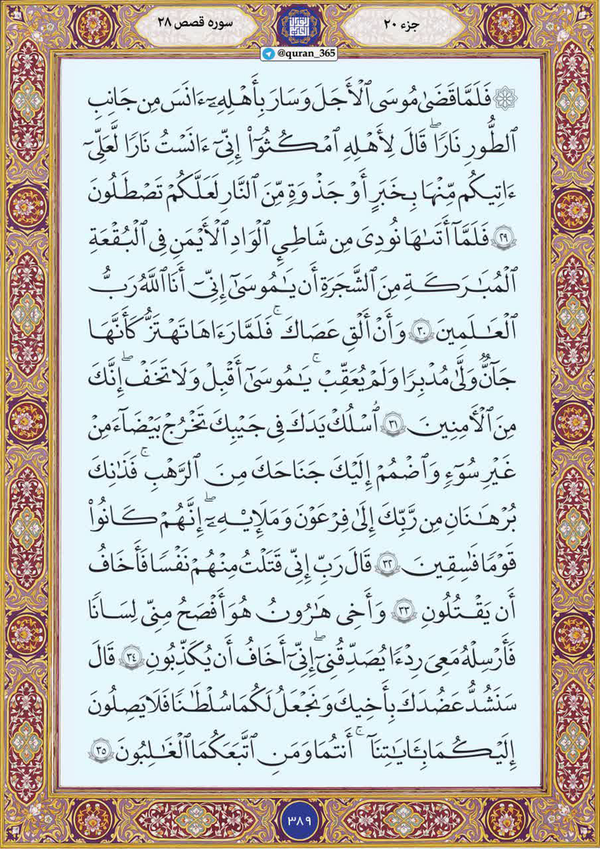 جزء ۲۰
سوره قصص ۲۸
@quran_365
۞ فَلَمَّا قَضَىٰ مُوسَى ٱلْأَجَلَ وَسَارَ بِأَهْلِهِۦٓ ءَانَسَ مِن جَانِبِ
ٱلطُّورِ نَارًاۖ قَالَ لِأَهْلِهِ ٱمْكُثُوٓاْ إِنِّىٓ ءَانَسْتُ نَارًا لَّعَلِّىٓ
ءَاتِيكُم مِّنْهَا بِخَبَرٍ أَوْ جَذْوَةٍ مِّنَ ٱلنَّارِ لَعَلَّكُمْ تَصْطَلُونَ
۲۹ فَلَمَّآ أَتَىٰهَا نُودِىَ مِن شَاطِئِ ٱلْوَادِ ٱلْأَيْمَنِ فِى ٱلْبُقْعَةِ
ٱلْمُبَٰرَكَةِ مِنَ ٱلشَّجَرَةِ أَن يَٰمُوسَىٰٓ إِنِّىٓ أَنَا ٱللَّهُ رَبُّ
ٱلْعَٰلَمِينَ ۳۰ وَأَنْ أَلْقِ عَصَاكَۚ فَلَمَّا رَءَاهَا تَهْتَزُّ كَأَنَّهَا
جَآنٌّ وَلَّىٰ مُدْبِرًا وَلَمْ يُعَقِّبْۚ يَٰمُوسَىٰٓ أَقْبِلْ وَلَا تَخَفْۖ إِنَّكَ
مِنَ ٱلْأٓمِنِينَ ۳۱ ٱسْلُكْ يَدَكَ فِى جَيْبِكَ تَخْرُجْ بَيْضَآءَ مِنْ
غَيْرِ سُوٓءٍ وَٱضْمُمْ إِلَيْكَ جَنَاحَكَ مِنَ ٱلرَّهْبِۖ فَذَٰنِكَ
بُرْهَٰنَانِ مِن رَّبِّكَ إِلَىٰ فِرْعَوْنَ وَمَلَإِيْهِۦٓۚ إِنَّهُمْ كَانُواْ
قَوْمًا فَٰسِقِينَ ۳۲ قَالَ رَبِّ إِنِّى قَتَلْتُ مِنْهُمْ نَفْسًا فَأَخَافُ
أَن يَقْتُلُونِ ۳۳ وَأَخِى هَٰرُونُ هُوَ أَفْصَحُ مِنِّى لِسَانًا
فَأَرْسِلْهُ مَعِىَ رِدْءًا يُصَدِّقُنِىٓۖ إِنِّىٓ أَخَافُ أَن يُكَذِّبُونِ ۳۴ قَالَ
سَنَشُدُّ عَضُدَكَ بِأَخِيكَ وَنَجْعَلُ لَكُمَا سُلْطَٰنًا فَلَا يَصِلُونَ
إِلَيْكُمَا بِـَٔايَٰتِنَآۚ أَنتُمَا وَمَنِ ٱتَّبَعَكُمَا ٱلْغَٰلِبُونَ ۳۵
۳۸۹